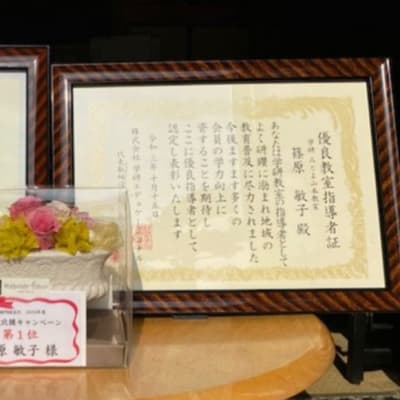 優良教室指導者証
学研 みとよ山本教室
篠原 敏子 殿
あなたは学研教室の指導者として
よく研鑽に励まれ地域の
教育普及に尽力されました
今後ますます多くの
会員の学力向上に
資することを期待し
ここに優良指導者として
認定し表彰いたします
令和三年十月十五日
株式会社 学研エデュケー
代表取締役
キャンペーン
第1位
原 敏子 様